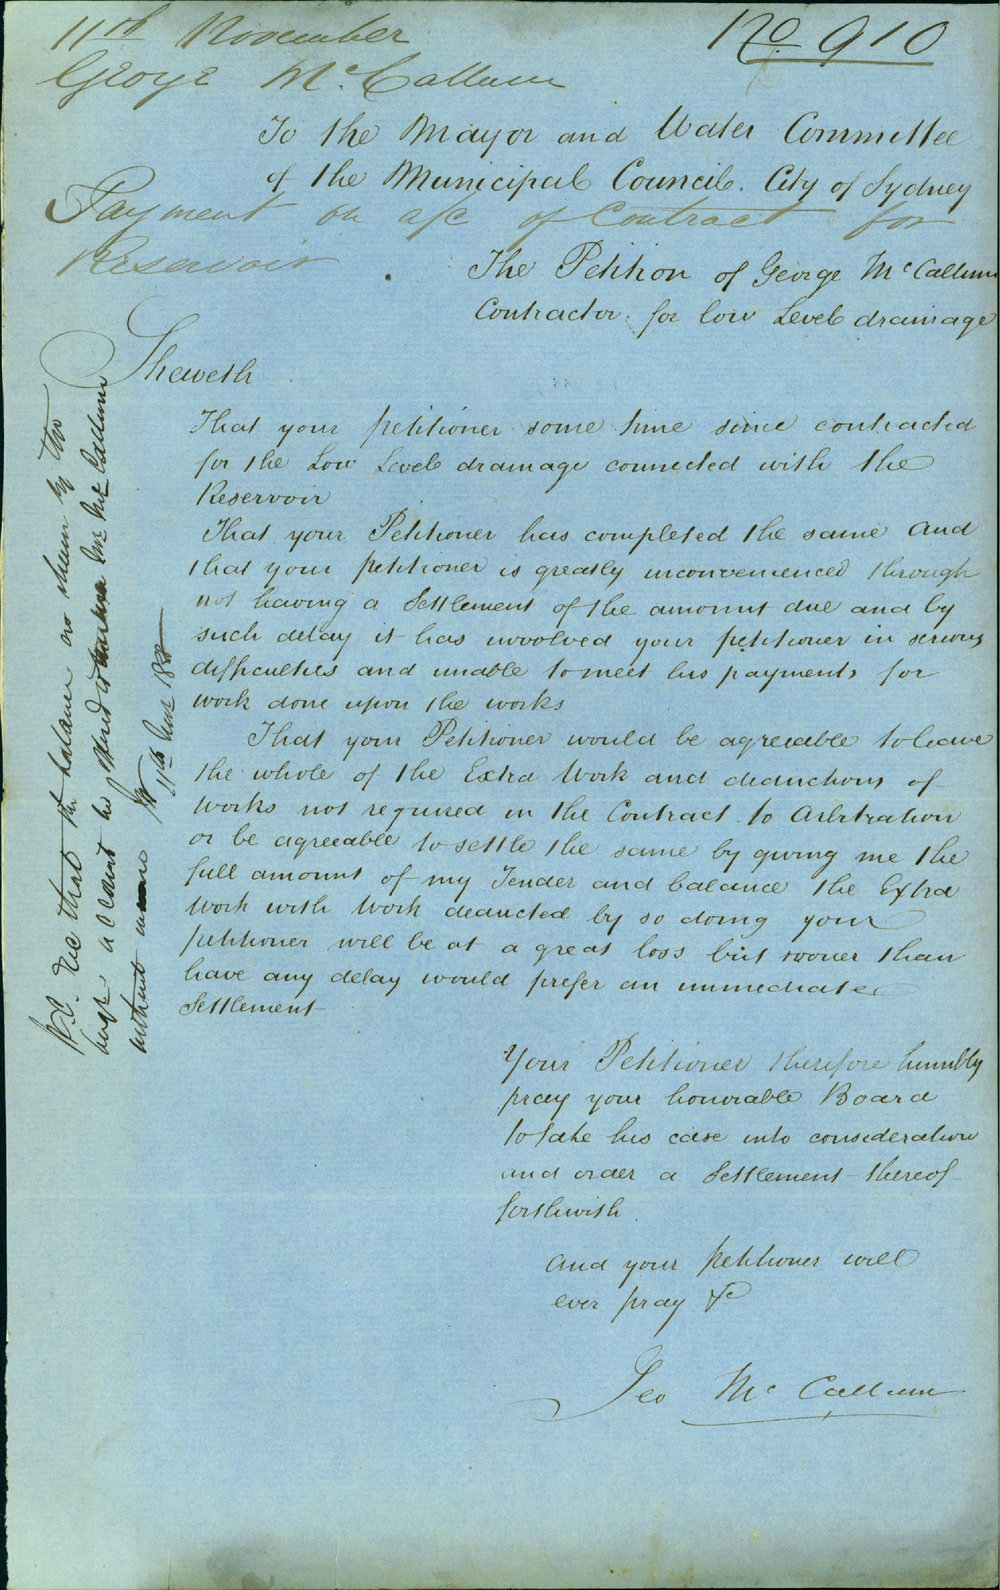 11th November
No 910
George McCallum
To the Mayor and Water Committee
of the Municipal Council. City of Sydney
Payment on a/c of Contract for
Reservoir
The Petition of George McCallum
Contractor for low Level drainage
Sheweth
That your petitioner some time since contracted
for the Low Level drainage connected with the
Reservoir
That your Petitioner has completed the same and
that your petitioner is greatly inconvenienced through
not having a Settlement of the amount due and by
such delay it has involved your petitioner in serious
difficulties and unable to meet his payments for
work done upon the works
That your Petitioner would be agreeable to leave
the whole of the Extra Work and deductions of
Works not required in the Contract to Arbitration
or be agreeable to settle the same by giving me the
full amount of my Tender and balance the Extra
Work with Work deducted by so doing your
petitioner will be at a great loss but sooner than
have any delay would prefer an immediate
Settlement
Your Petitioner therefore humbly
pray your honorable Board
to take his case into consideration
and order a Settlement thereof
forthwith
And your petitioner will
ever pray &c
Geo McCallum
that the balance as shewn by
account be Mr McCallum
without
11th